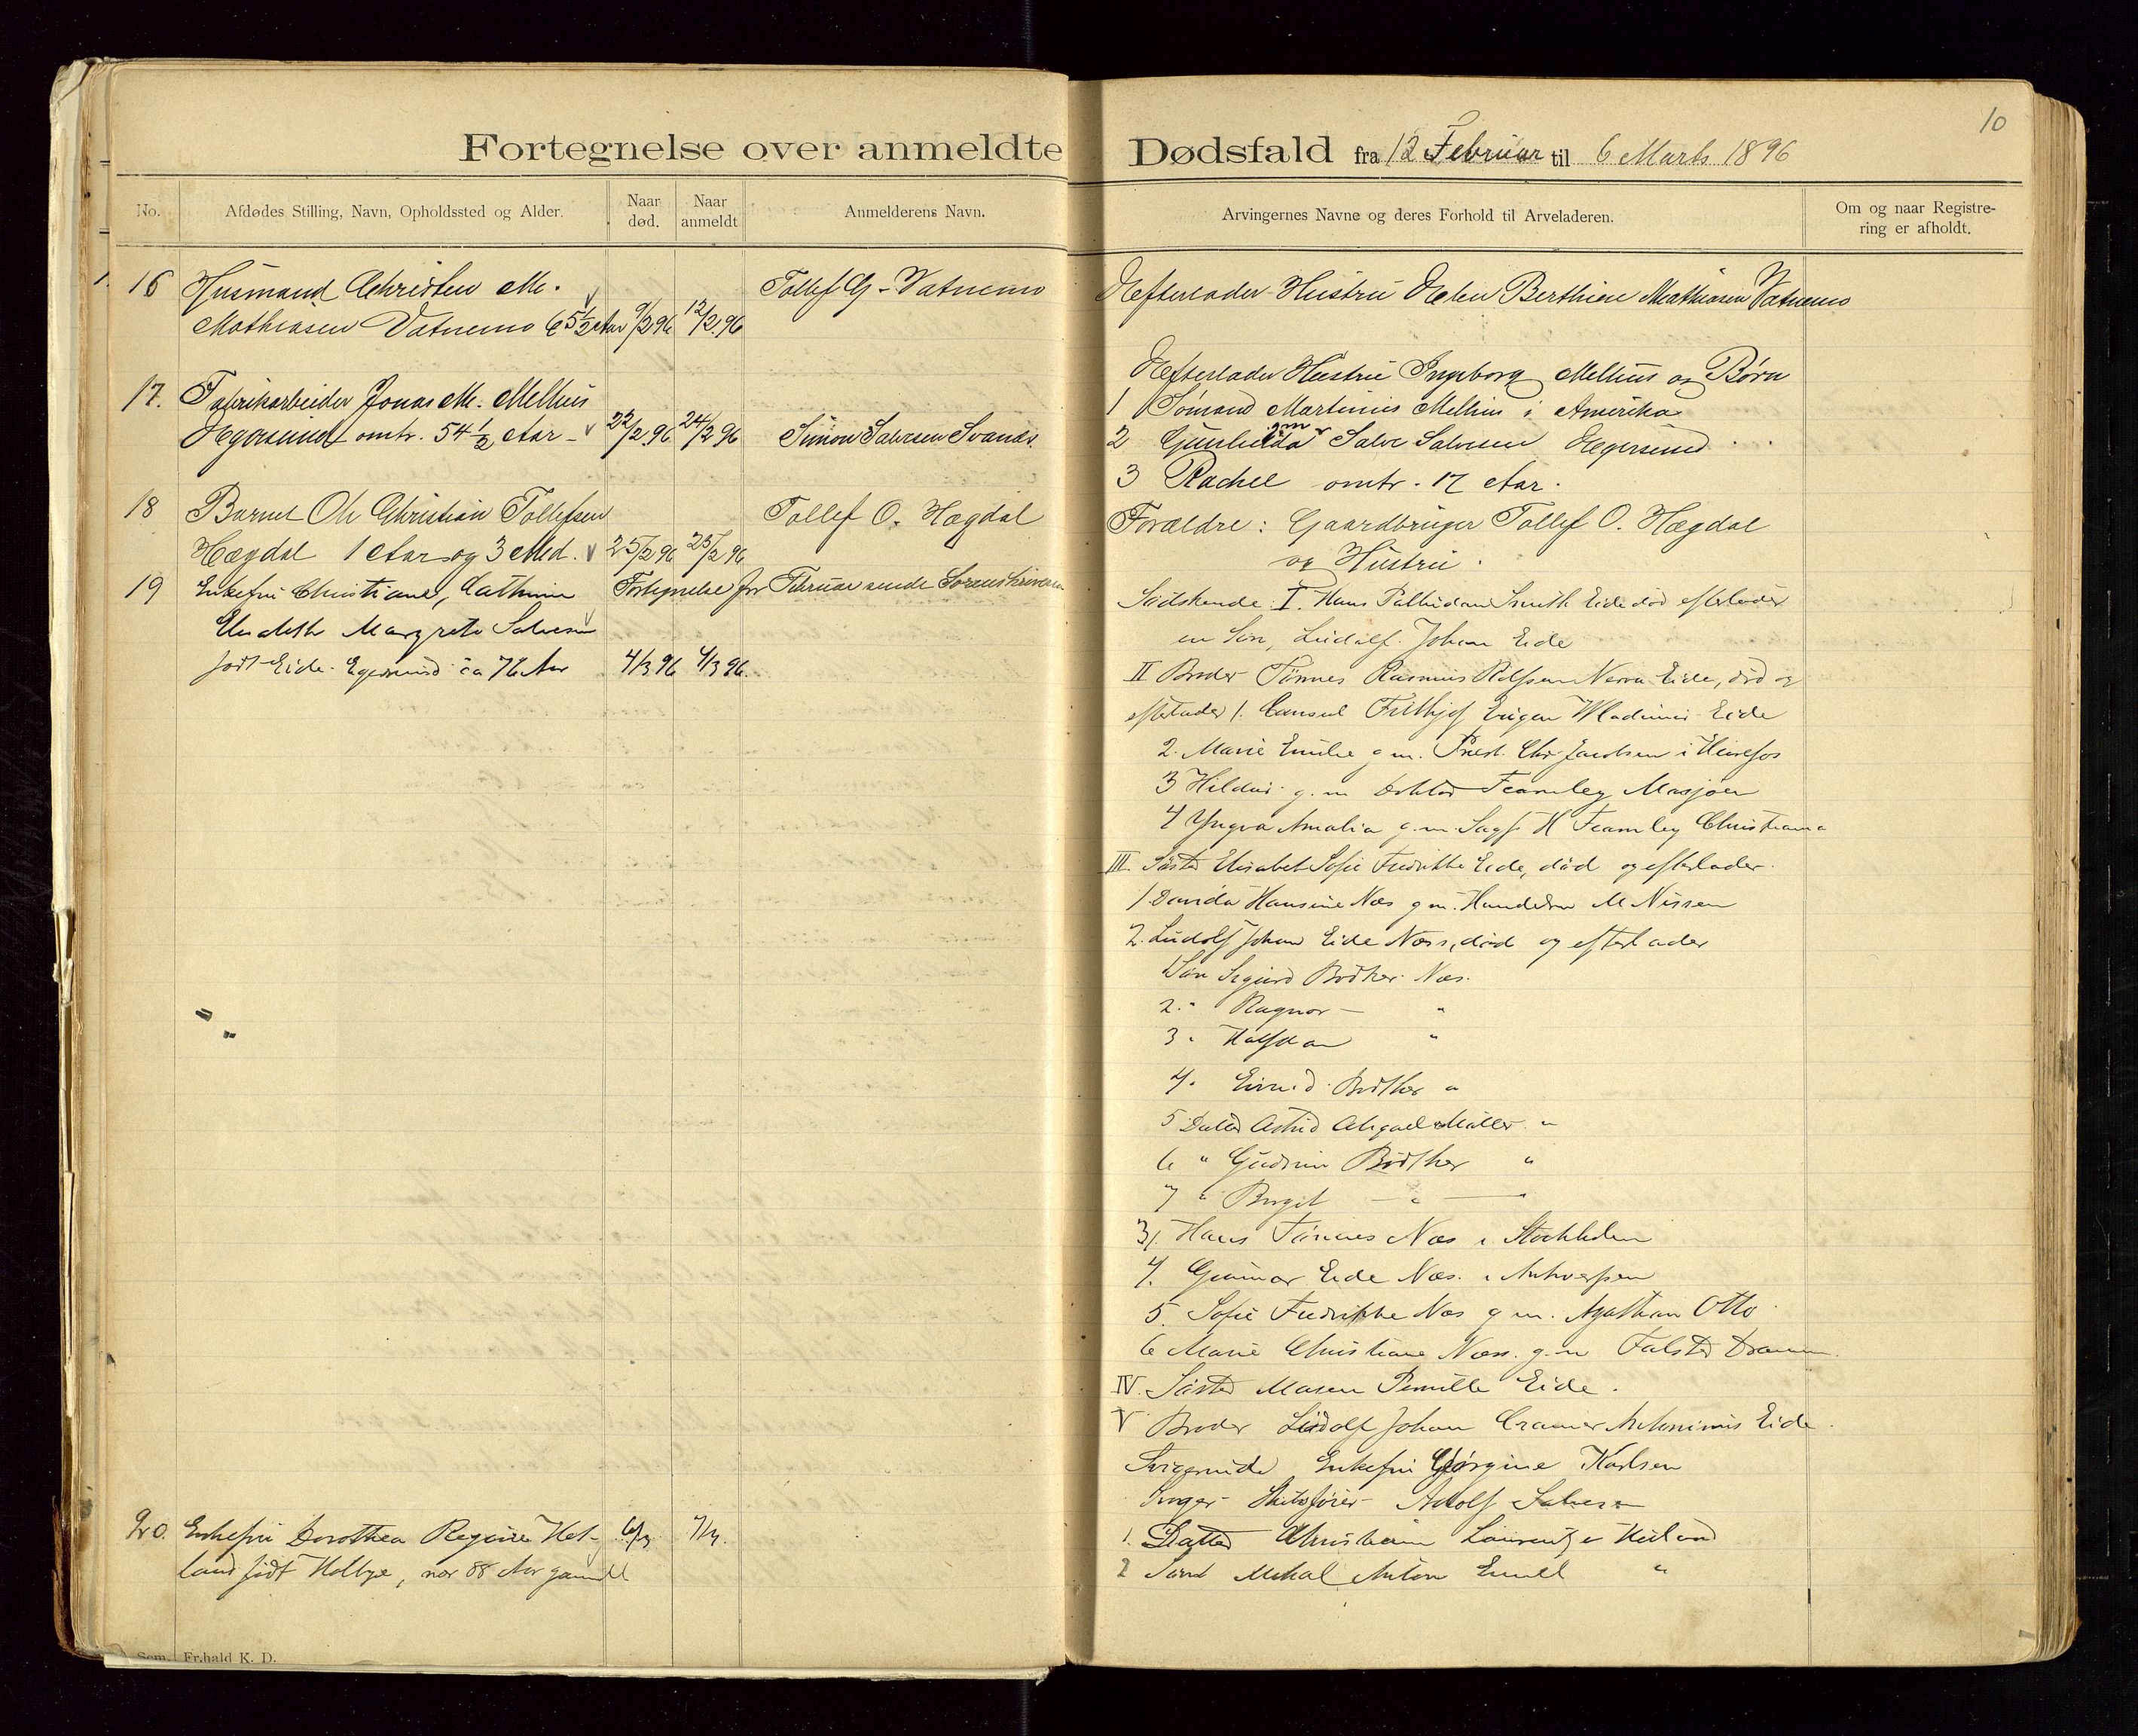 10
Fortegnelse over anmeldte Dødsfald fra 12 Februar til 6 Marts 1896
No.
Afdødes Stilling, Navn, Opholdssted og Alder.
Naar død.
Naar anmeldt
Anmelderens Navn.
Arvingernes Navne og deres Forhold til Arveladeren.
Om og naar Registre-
ring er afholdt.
16 Husmand Christen M. Tollef G. Vatnemo
Mathiasen Vatnemo 65 1/2 Aar 9/2 96 12/2 96
Efterlader Hustru Elen Berthine Mathiasen Vatnemo
17. Fabrikarbeider Jonas M. Mellius
Egersund omtr. 54 1/2 Aar 22/2 96 24/2 96 Simon Salvesen Svandr.
Efterlader Hustru Ingeborg Mellius og Børn
1 Sømand Martinius Mellius i Amerika
2 Gunhilda gm Salve Salvesen Egersund
3 Rachel omtr. 17 Aar.
18 Barnet Ole Christian Tollefsen Tollef O. Hægdal
Hægdal 1 Aar og 3 Md. 25/2 96 25/2 96
Forældre: Gaardbruger Tollef O. Hægdal
og Hustru.
19 Enkefru Christiane, Cathrine Fortegnelse for Februar sendt Sorenskriveren
Elisabeth Margrete Salvesen
født Eide Egersund ca 76 Aar 4/3 96 4/3 96.
Sødskende: I. Hans Palludan Smith Eide død efterlader
en Søn, Ludolf Johan Eide
II Broder Tønnes Rasmus Eide, død og
efterlader 1. Consul Frithjof Eugen Wladimir Eide
2. Marie Emilie g m. Præst. Chr Jacobsen i
3 g. m Doktor Fearnley Mosjøen
4 Yngva Amalia g. m. Sagf H Fearnley Christiania
III. Søster Elisabet Sofie Fredrikke Eide, død og efterlader
1. Davida Hansine Næs g m. M Nissen
2. Ludolf Johan Eide Næss, død og efterlader
1 Søn Sigurd Bødtker Næs.
2. " Ragnar — "
3 " Halfdan "
4. Eivind Bødtker "
5 Datter Astrid Abigael Møller "
6 " Gudrun Bødtker "
7 " Birgit — " — "
3/. Hans Tønnes Næs i Stockholm
4. Gunnar Eide Næs. i Antwerpen
5. Sofie Fredrikke Næs g m. Agathon Otto
6 Marie Christiane Næss. g. m Falsted Dramm.
IV. Søster Maren Pernille Eide.
V Broder Ludolf Johan Cramer Antoninus Eide
Enkefru Gjørgine Karlsen
Svoger Skibsfører Adolf Salvesen
20. Enkefru Dorothea Regine Het- 6/3. 7/3.
land født Holbye, nær 88 Aar gammel
1. Datter Christiane Laurentze Hetland
2 Søn Mikal Anton Emil "
Sem. Fr.hald K. D.